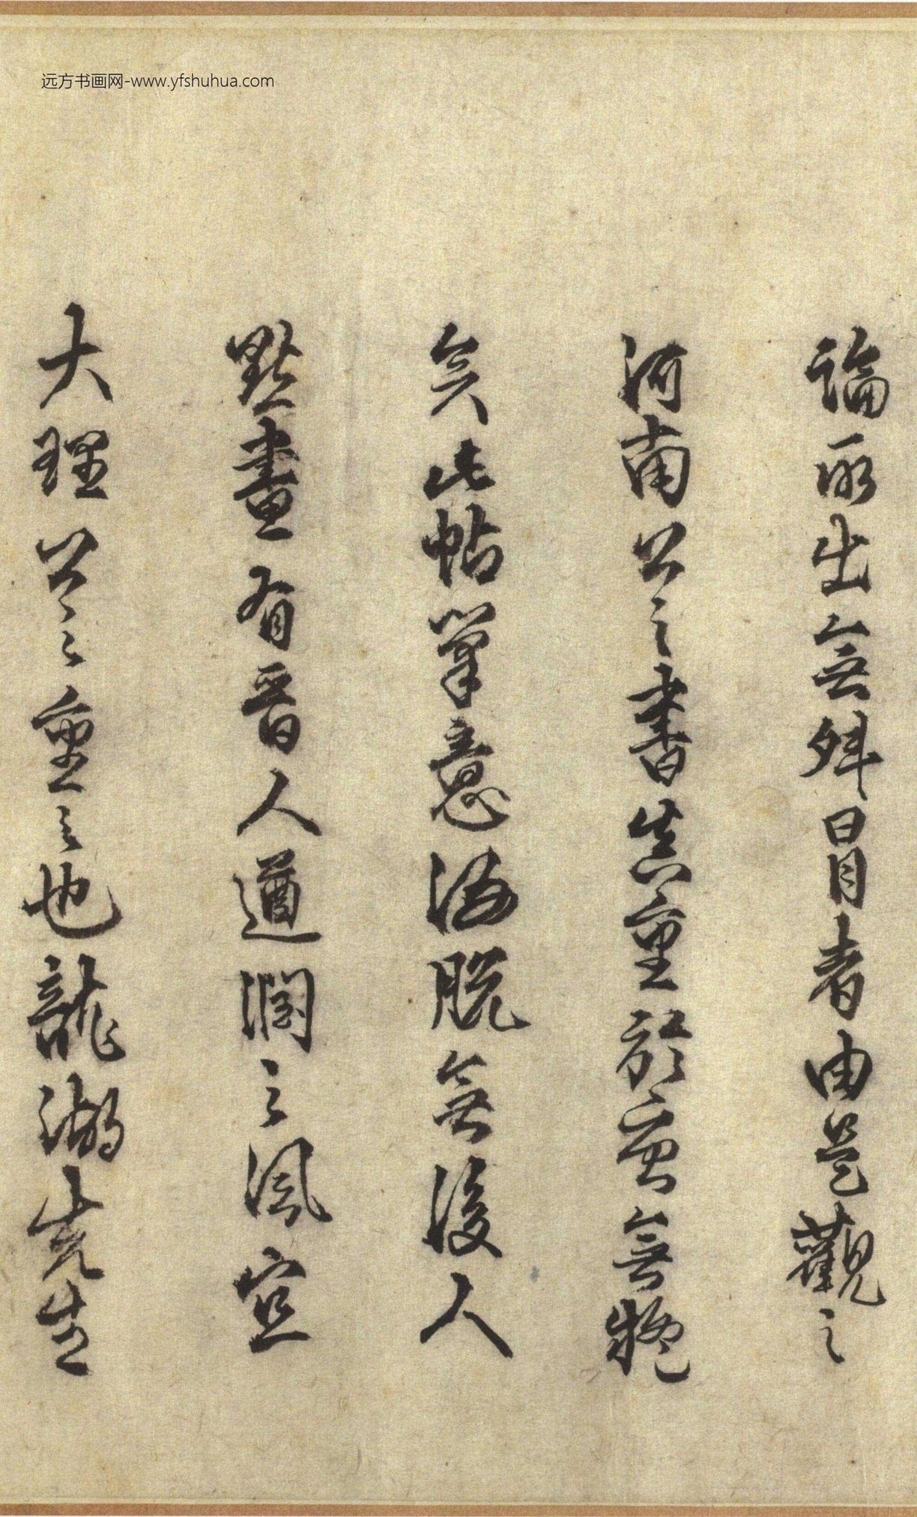 遠方书画网-www.yfshuhua.com
論所出無舛冒者由是觀之
河南公之書重於唐無疑
矣此帖筆意洒脫無後人
點畫有晉人遒潤之風宜
大理公之重之也龍湖先生